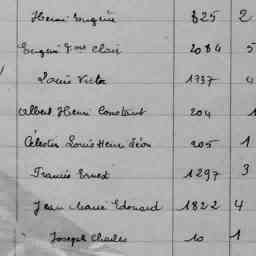 Henri Eugène 825 2
Eugène Fois Clair 2084 5
Louis Victor 1737 4
Albert Henri Constant 204 1
Célestin Louis Henri Léon 205 1
Francis Ernest 1297 3
Jean Marie Edouard 1822 4
Joseph Charles 10 1